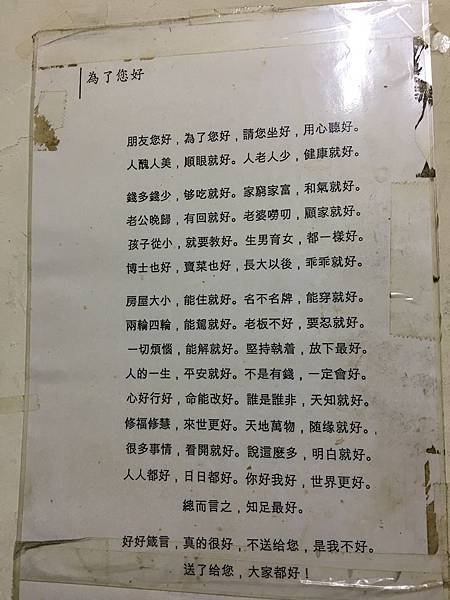 為了您好
朋友您好，為了您好，請您坐好，用心聽好。
人醜人美，順眼就好。人老人少，健康就好。
錢多錢少，够吃就好。家窮家富，和氣就好。
老公晚歸，有回就好。老婆嘮叨，顧家就好。
孩子從小，就要教好。生男育女，都一樣好。
博士也好，賣菜也好，長大以後，乖乖就好。
房屋大小，能住就好。名不名牌，能穿就好。
兩輪四輪，能駕就好。老板不好，要忍就好。
一切煩惱，能解就好。堅持執着，放下最好。
人的一生，平安就好。不是有錢，一定會好。
心好行好，命能改好。誰是誰非，天知就好。
修福修慧，來世更好。天地萬物，随缘就好。
很多事情，看開就好。說這麼多，明白就好。
人人都好，日日都好。你好我好，世界更好。
總而言之，知足最好。
好好箴言，真的很好，不送给您，是我不好。
送了给您，大家都好！